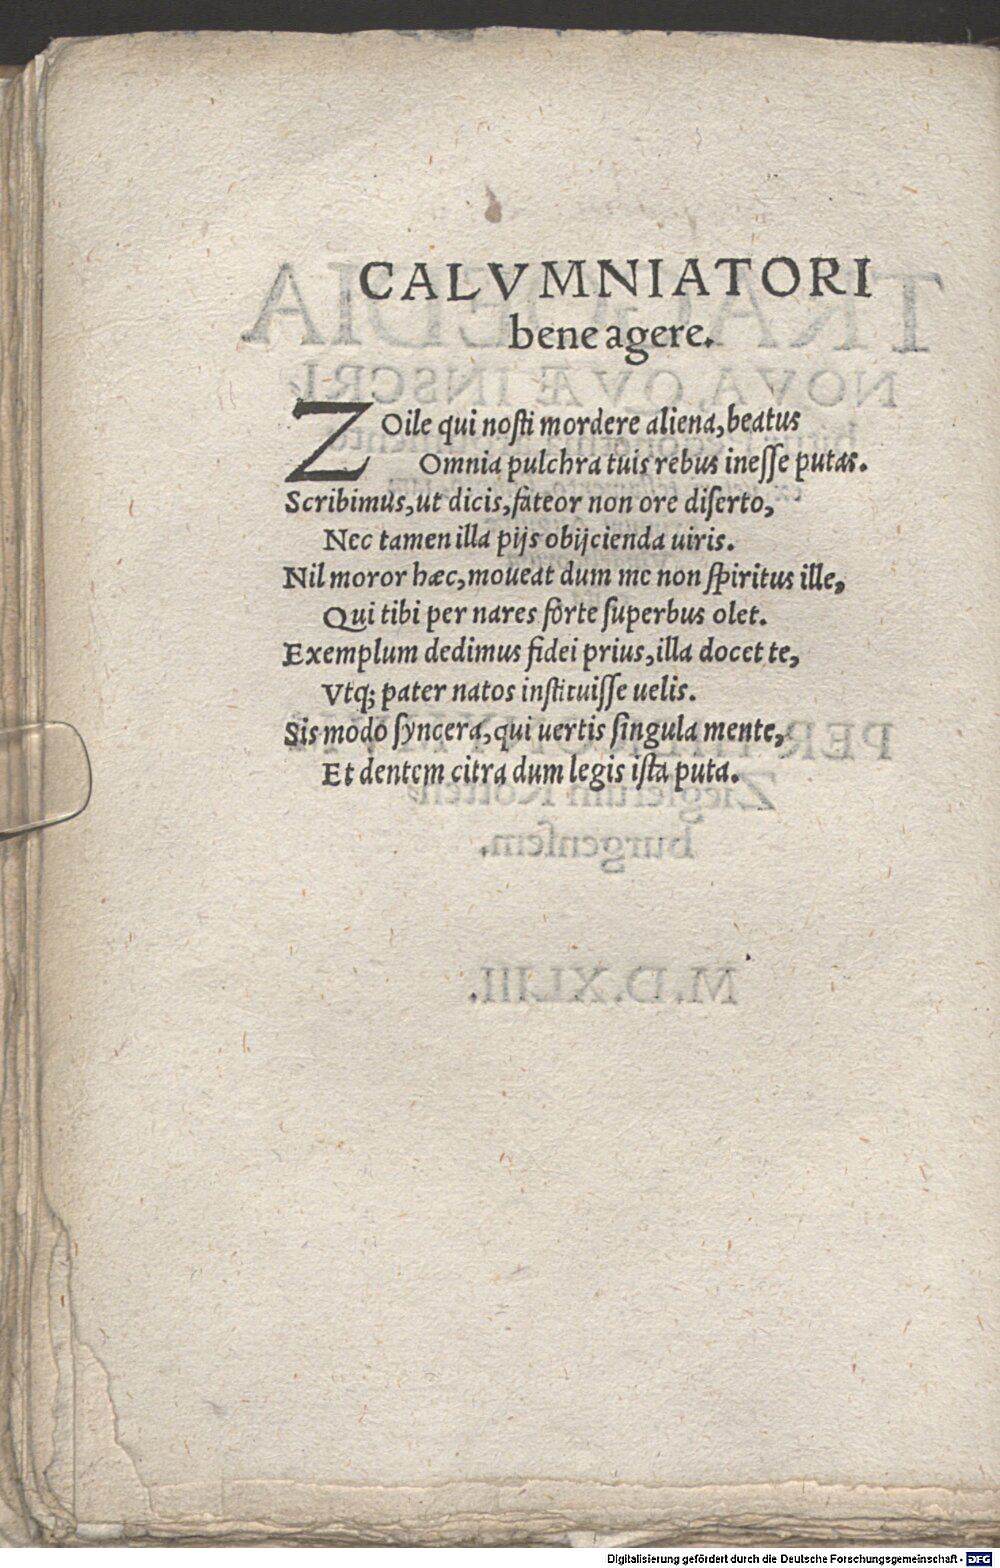 CALVMNIATORI
bene agere.
ZOile qui nosti mordere aliena, beatus
Omnia pulchra tuis rebus inesse putas.
Scribimus, ut dicis, fateor non ore diserto,
Nec tamen illa pijs obijcienda uiris.
Nil moror hæc, moueat dum me non spiritus ille,
Qui tibi per nares forte superbus olet.
Exemplum dedimus fidei prius, illa docet te,
Vtq; pater natos instituisse uelis.
Sis modo syncera, qui uertis singula mente,
Et dentem citra dum legis ista puta.
Digitalisierung gefördert durch die Deutsche Forschungsgemeinschaft - DFG